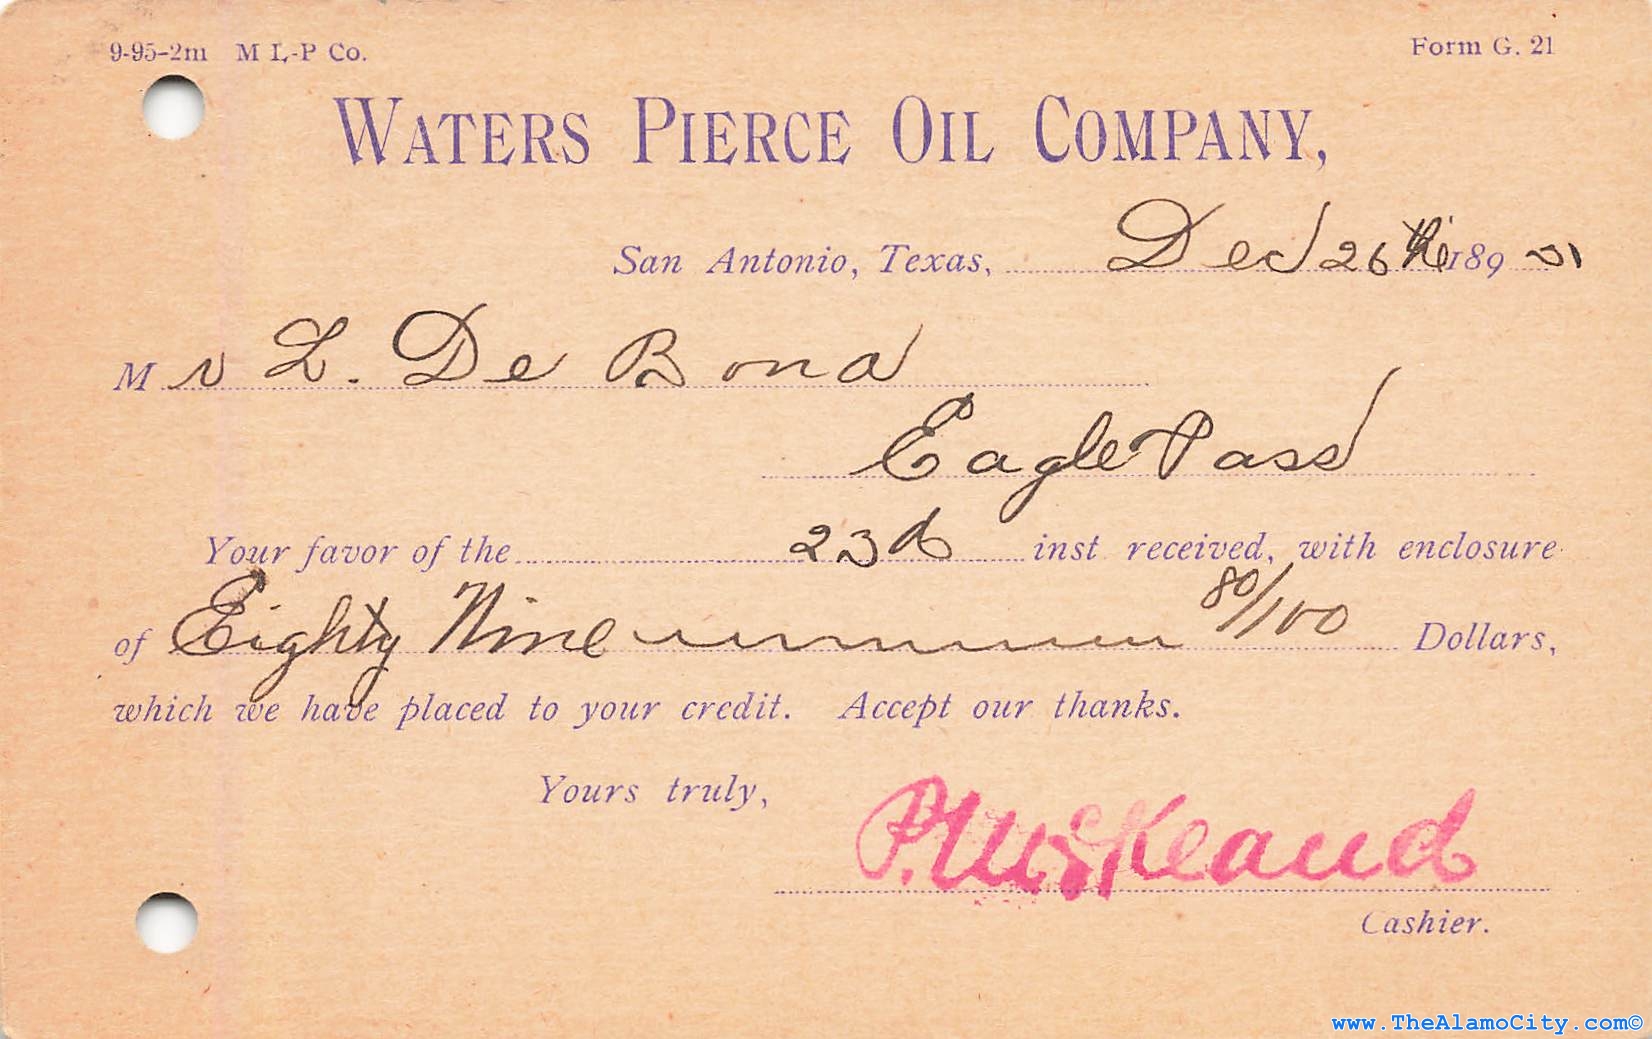 9-95-2m M L-P Co. Form G. 21
WATERS PIERCE OIL COMPANY,
San Antonio, Texas, Dec 26th 189
Mr L. De Bona
Eagle Pass
Your favor of the 23d inst received, with enclosure
of Eighty Nine 80/100 Dollars,
which we have placed to your credit. Accept our thanks.
Yours truly,
Cashier.
www.TheAlamoCity.com©